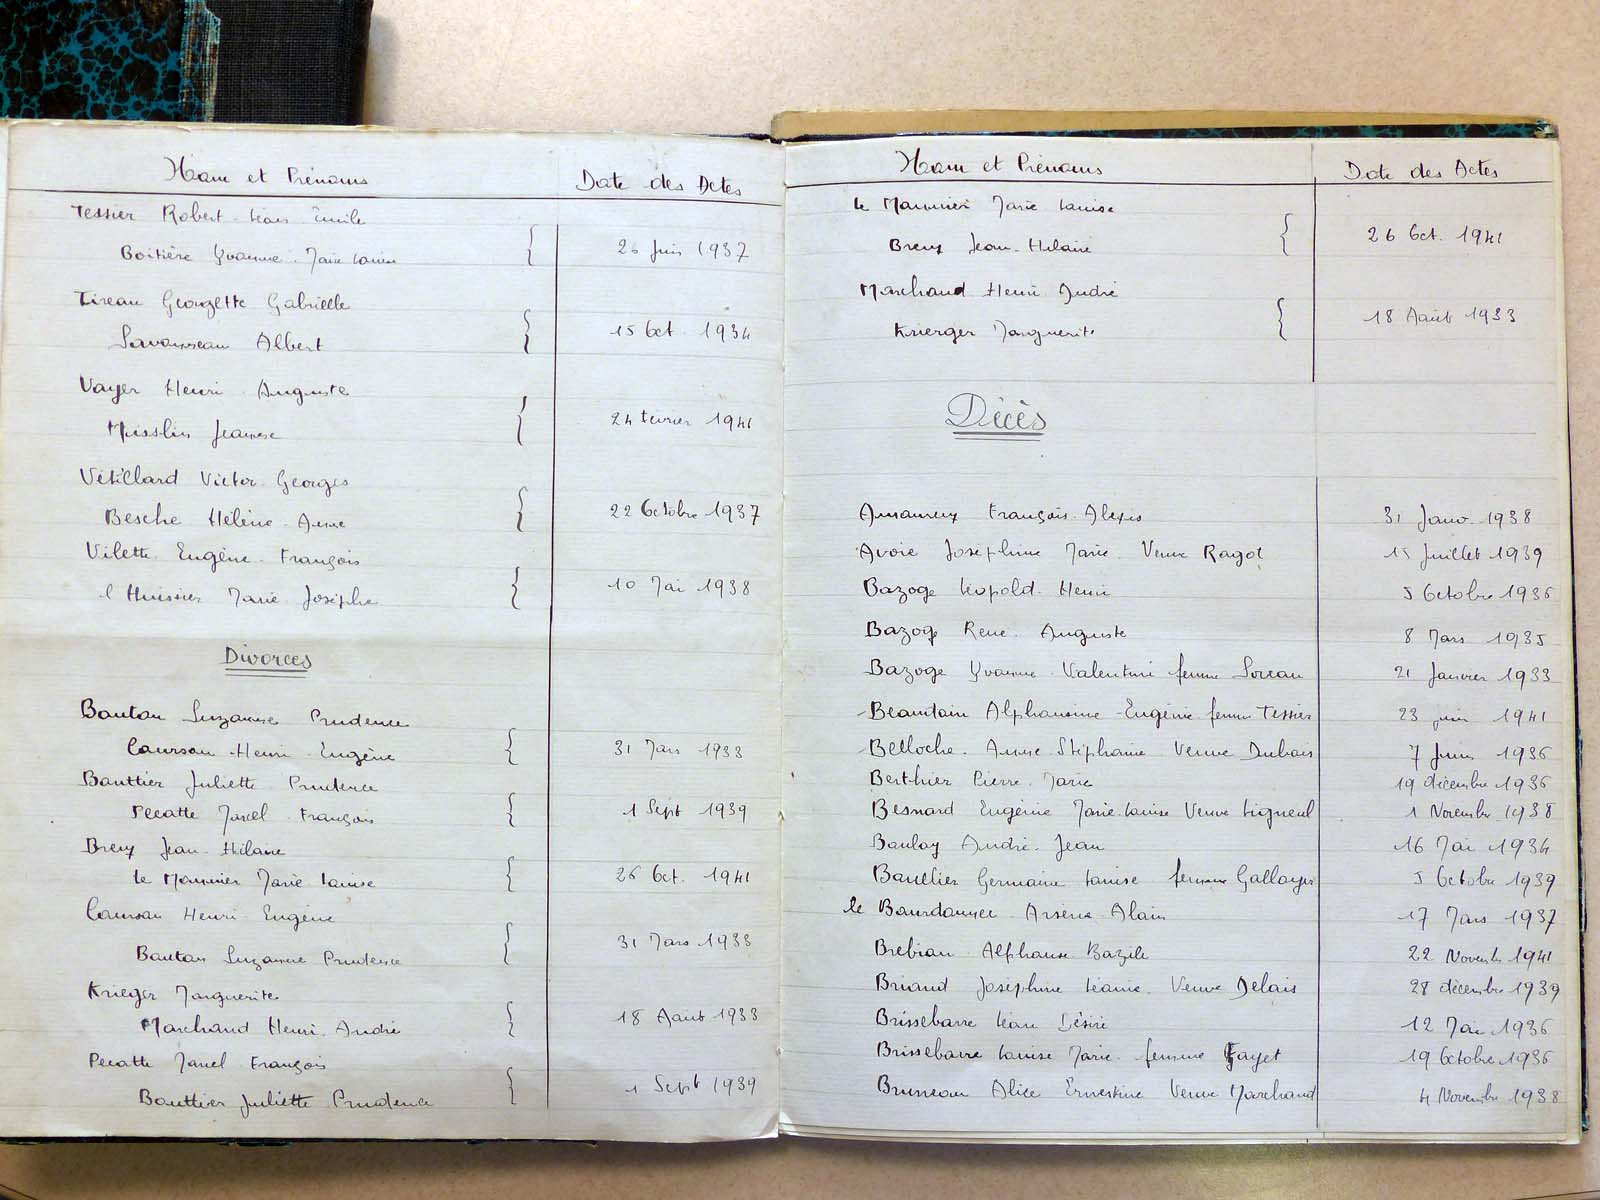 Nom et Prénoms
Date des Actes
Tessier Robert Léon Emile
Boitière Yvonne Marie Louise
{ 26 Juin 1937
Tireau Georgette Gabrielle
Savouneau Albert
{ 15 Oct. 1934
Vayer Henri Auguste
Musslin Jeanne
{ 24 février 1941
Vétillard Victor Georges
Besche Hélène Anne
{ 22 Octobre 1937
Vilette Eugène François
l'Huissier Marie Josèphe
{ 10 Mai 1938
Divorces
Bouton Suzanne Prudence
Courson Henri Eugène
{ 31 Mars 1933
Bouttier Juliette Prudence
Pecatte Marcel François
{ 1 Sept 1939
Breux Jean Hilaire
le Monnier Marie Louise
{ 26 Oct. 1941
Courson Henri Eugène
Bouton Suzanne Prudence
{ 31 Mars 1933
Krieger Marguerite
Marchand Henri André
{ 18 Août 1933
Pecatte Marcel François
Bouttier Juliette Prudence
{ 1 Sept 1939
Nom et Prénoms
Date des Actes
le Monnier Marie Louise
Breux Jean-Hilaire
{ 26 Oct. 1941
Marchand Henri André
Krierger Marguerite
{ 18 Août 1933
Décès
François Alexis 31 Janv. 1938
Avoie Joséphine Marie Veuve Ragot 15 Juillet 1939
Bazoge Léopold Henri 5 Octobre 1936
Bazoge René Auguste 8 Mars 1935
Bazoge Yvonne Valentine femme Loreau 21 Janvier 1933
Beaudoin Alphonsine Eugénie femme Tessier 23 juin 1941
Belloche Anne Stéphanie Veuve Dubois 7 Juin 1936
Berthier Pierre Marie 19 décembre 1936
Besnard Eugénie Marie Louise Veuve Ligneul 1 Novembre 1938
Boulay André Jean 16 Mai 1934
Boullier Germaine Louise femme 5 Octobre 1939
le Bourdonnec Arsène Alain 17 Mars 1937
Brebion Alphonse Bazile 22 Novembre 1941
Briand Joséphine Léonie Veuve Delais 28 décembre 1939
Brissebarre Léon Désiré 12 Mai 1936
Brissebarre Louise Marie femme Fayet 19 Octobre 1936
Bruneau Alice Ernestine Veuve Marchand 4 Novembre 1938